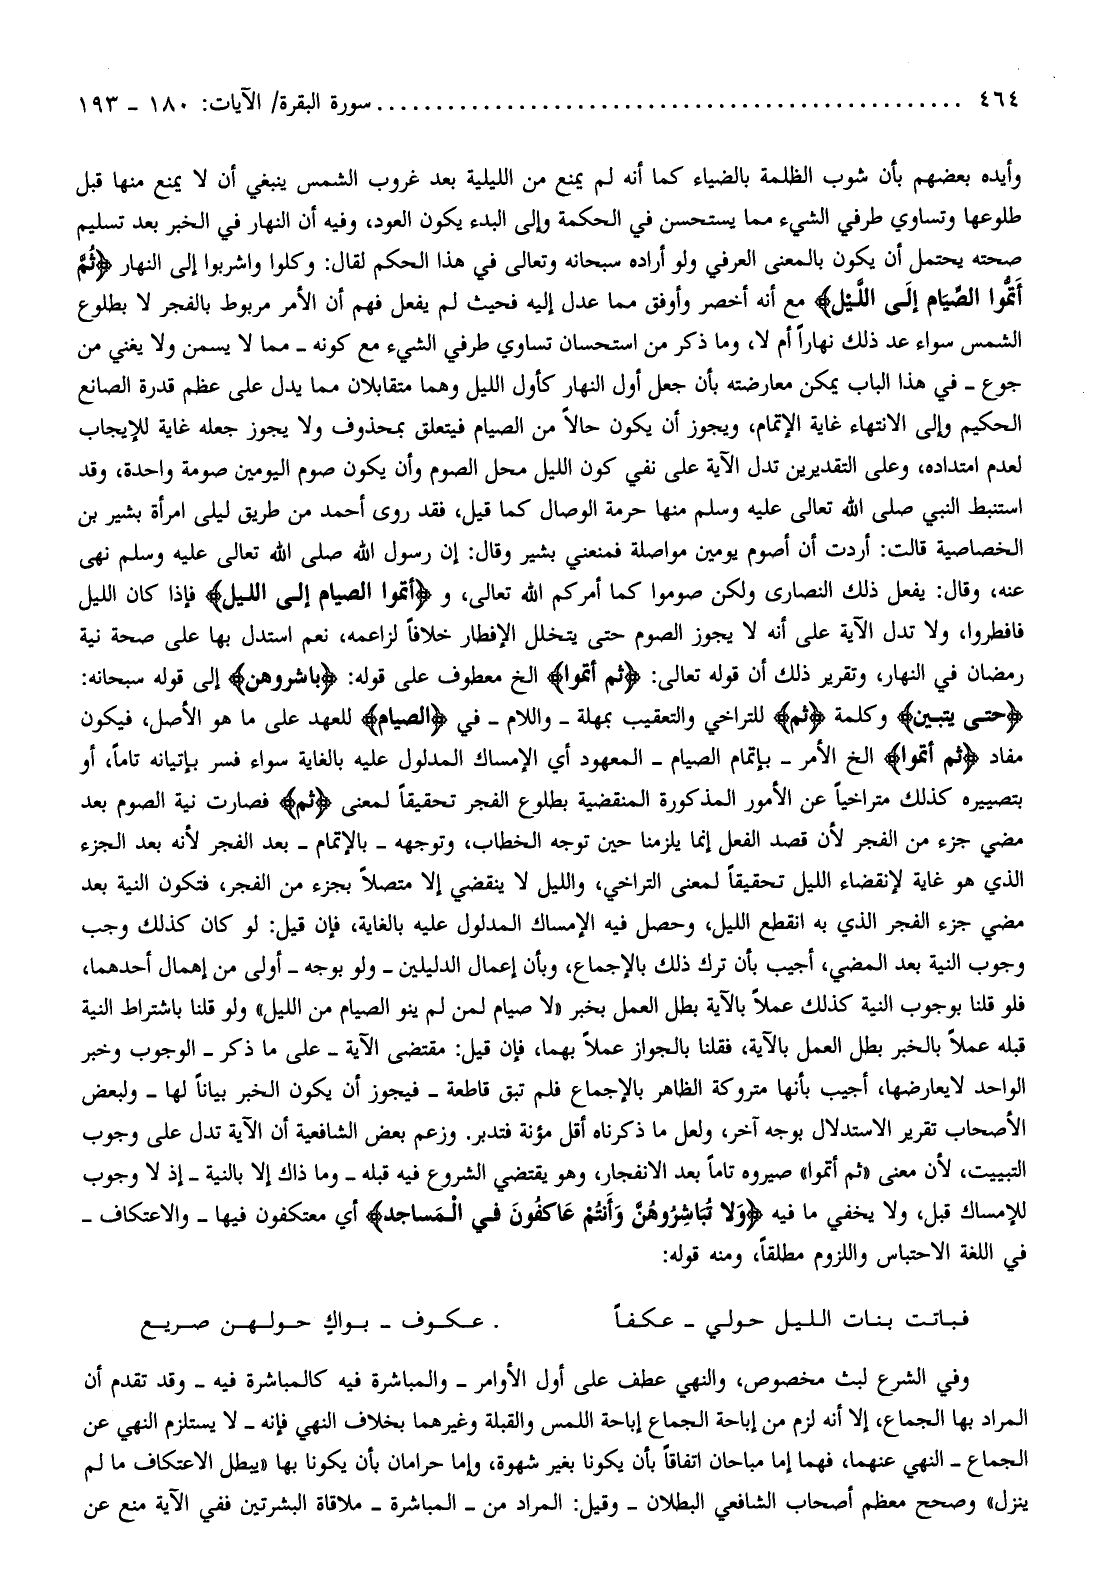 ٤٦٤ ........................................................ سورة البقرة/ الآيات: ١٨٠ ـ ١٩٣
وأيده بعضهم بأن شوب الظلمة بالضياء كما أنه لم يمنع من الليلية بعد غروب الشمس ينبغي أن لا يمنع منها قبل
طلوعها وتساوي طرفي الشيء مما يستحسن في الحكمة وإلى البدء يكون العود، وفيه أن النهار في الخبر بعد تسليم
صحته يحتمل أن يكون بالمعنى العرفي ولو أراده سبحانه وتعالى في هذا الحكم لقال: وكلوا واشربوا إلى النهار ﴿ثُمَّ
أَتِمُّوا الصِّيَام إلَى اللَّيْل﴾ مع أنه أخصر وأوفق مما عدل إليه فحيث لم يفعل فهم أن الأمر مربوط بالفجر لا بطلوع
الشمس سواء عد ذلك نهاراً أم لا، وما ذكر من استحسان تساوي طرفي الشيء مع كونه ـ مما لا يسمن ولا يغني من
جوع ـ في هذا الباب يمكن معارضته بأن جعل أول النهار كأول الليل وهما متقابلان مما يدل على عظم قدرة الصانع
الحكيم وإلى الانتهاء غاية الإتمام، ويجوز أن يكون حالاً من الصيام فيتعلق بمحذوف ولا يجوز جعله غاية للإيجاب
لعدم امتداده، وعلى التقديرين تدل الآية على نفي كون الليل محل الصوم وأن يكون صوم اليومين صومة واحدة، وقد
استنبط النبي صلى الله تعالى عليه وسلم منها حرمة الوصال كما قيل، فقد روى أحمد من طريق ليلى امرأة بشير بن
الخصاصية قالت: أردت أن أصوم يومين مواصلة فمنعني بشير وقال: إن رسول الله صلى الله تعالى عليه وسلم نهى
عنه، وقال: يفعل ذلك النصارى ولكن صوموا كما أمركم الله تعالى، و ﴿أتموا الصيام إلى الليل﴾ فإذا كان الليل
فافطروا، ولا تدل الآية على أنه لا يجوز الصوم حتى يتخلل الإفطار خلافاً لزاعمه، نعم استدل بها على صحة نية
رمضان في النهار، وتقرير ذلك أن قوله تعالى: ﴿ثم أتموا﴾ الخ معطوف على قوله: ﴿باشروهن﴾ إلى قوله سبحانه:
﴿حتى يتبين﴾ وكلمة ﴿ثم﴾ للتراخي والتعقيب بمهلة ـ واللام ـ في ﴿الصيام﴾ للعهد على ما هو الأصل، فيكون
مفاد ﴿ثم أتموا﴾ الخ الأمر ـ بإتمام الصيام ـ المعهود أي الإمساك المدلول عليه بالغاية سواء فسر بإتيانه تاماً، أو
بتصييره كذلك متراخياً عن الأمور المذكورة المنقضية بطلوع الفجر تحقيقاً لمعنى ﴿ثم﴾ فصارت نية الصوم بعد
مضي جزء من الفجر لأن قصد الفعل إنما يلزمنا حين توجه الخطاب، وتوجهه ـ بالإتمام ـ بعد الفجر لأنه بعد الجزء
الذي هو غاية لإنقضاء الليل تحقيقاً لمعنى التراخي، والليل لا ينقضي إلا متصلاً بجزء من الفجر، فتكون النية بعد
مضي جزء الفجر الذي به انقطع الليل، وحصل فيه الإمساك المدلول عليه بالغاية، فإن قيل: لو كان كذلك وجب
وجوب النية بعد المضي، أجيب بأن ترك ذلك بالإجماع، وبأن إعمال الدليلين ـ ولو بوجه ـ أولى من إهمال أحدهما،
فلو قلنا بوجوب النية كذلك عملاً بالآية بطل العمل بخبر «لا صيام لمن لم ينو الصيام من الليل» ولو قلنا باشتراط النية
قبله عملاً بالخبر بطل العمل بالآية، فقلنا بالجواز عملاً بهما، فإن قيل: مقتضى الآية ـ على ما ذكر ـ الوجوب وخبر
الواحد لايعارضها، أجيب بأنها متروكة الظاهر بالإجماع فلم تبق قاطعة ـ فيجوز أن يكون الخبر بياناً لها ـ ولبعض
الأصحاب تقرير الاستدلال بوجه آخر، ولعل ما ذكرناه أقل مؤنة فتدبر. وزعم بعض الشافعية أن الآية تدل على وجوب
التبييت، لأن معنى «ثم أتموا» صيروه تاماً بعد الانفجار، وهو يقتضي الشروع فيه قبله ـ وما ذاك إلا بالنية ـ إذ لا وجوب
للإمساك قبل، ولا يخفي ما فيه ﴿وَلا تُبَاشِرُوهُنَّ وَأَنتُمْ عَاكفُونَ في الْمَساجد﴾ أي معتكفون فيها ـ والاعتكاف ـ
في اللغة الاحتباس واللزوم مطلقاً، ومنه قوله:
فباتت بنات الليل حولي ـ عكفاً . عكوف ـ بواكٍ حولهن صريع
وفي الشرع لبث مخصوص، والنهي عطف على أول الأوامر ـ والمباشرة فيه كالمباشرة فيه ـ وقد تقدم أن
المراد بها الجماع، إلا أنه لزم من إباحة الجماع إباحة اللمس والقبلة وغيرهما بخلاف النهي فإنه ـ لا يستلزم النهي عن
الجماع ـ النهي عنهما، فهما إما مباحان اتفاقاً بأن يكونا بغير شهوة، وإما حرامان بأن يكونا بها «يبطل الاعتكاف ما لم
ينزل» وصحح معظم أصحاب الشافعي البطلان ـ وقيل: المراد من ـ المباشرة ـ ملاقاة البشرتين ففي الآية منع عن